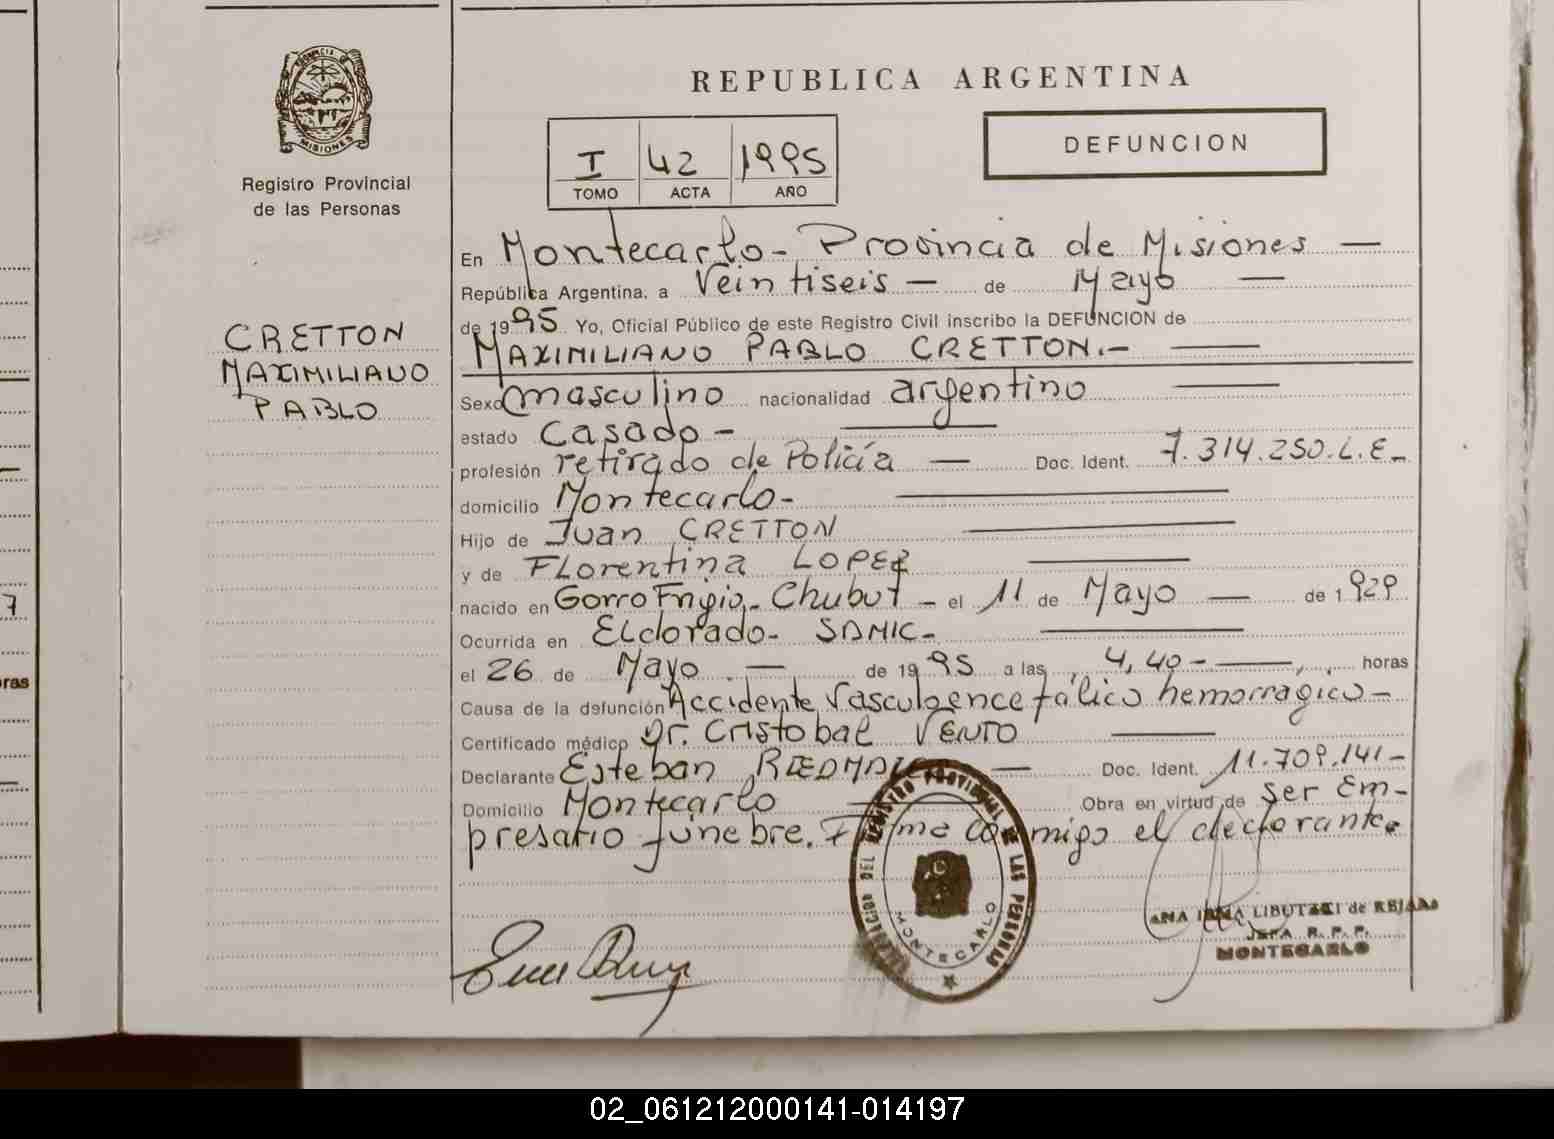 REPUBLICA ARGENTINA
PROVINCIA DE MISIONES
Registro Provincial
de las Personas
I 42 1995
TOMO ACTA AÑO
DEFUNCION
CRETTON
MAXIMILIANO
PABLO
En Montecarlo - Provincia de Misiones —
República Argentina, a Veintiseis — de Mayo —
de 1995 Yo, Oficial Público de este Registro Civil inscribo la DEFUNCION de
MAXIMILIANO PABLO CRETTON.- —
Sexo masculino nacionalidad argentino —
estado Casado - —
profesión retirado de Policía — Doc. Ident. 7.314.250.L.E-
domicilio Montecarlo- —
Hijo de Juan CRETTON —
y de FLorentina LOPEZ —
nacido en Gorro Frigio - Chubut - el 11 de Mayo — de 1929
Ocurrida en ELdorado- SAMIC- —
el 26 de Mayo. — de 1995 a las 4,40- — horas
Causa de la defunción Accidente Vasculoencefálico hemorragico -
Certificado médico Dr. Cristobal VENTO —
Declarante Esteban — Doc. Ident. 11.709.141-
Domicilio Montecarlo — Obra en virtud de ser Em-
presario fúnebre. Firma conmigo el declarante.
DEL REGISTRO PROVINCIAL DE LAS PERSONAS
MONTECARLO
ANA de
JEFA R. P. P.
MONTECARLO
7
ras
02_061212000141-014197